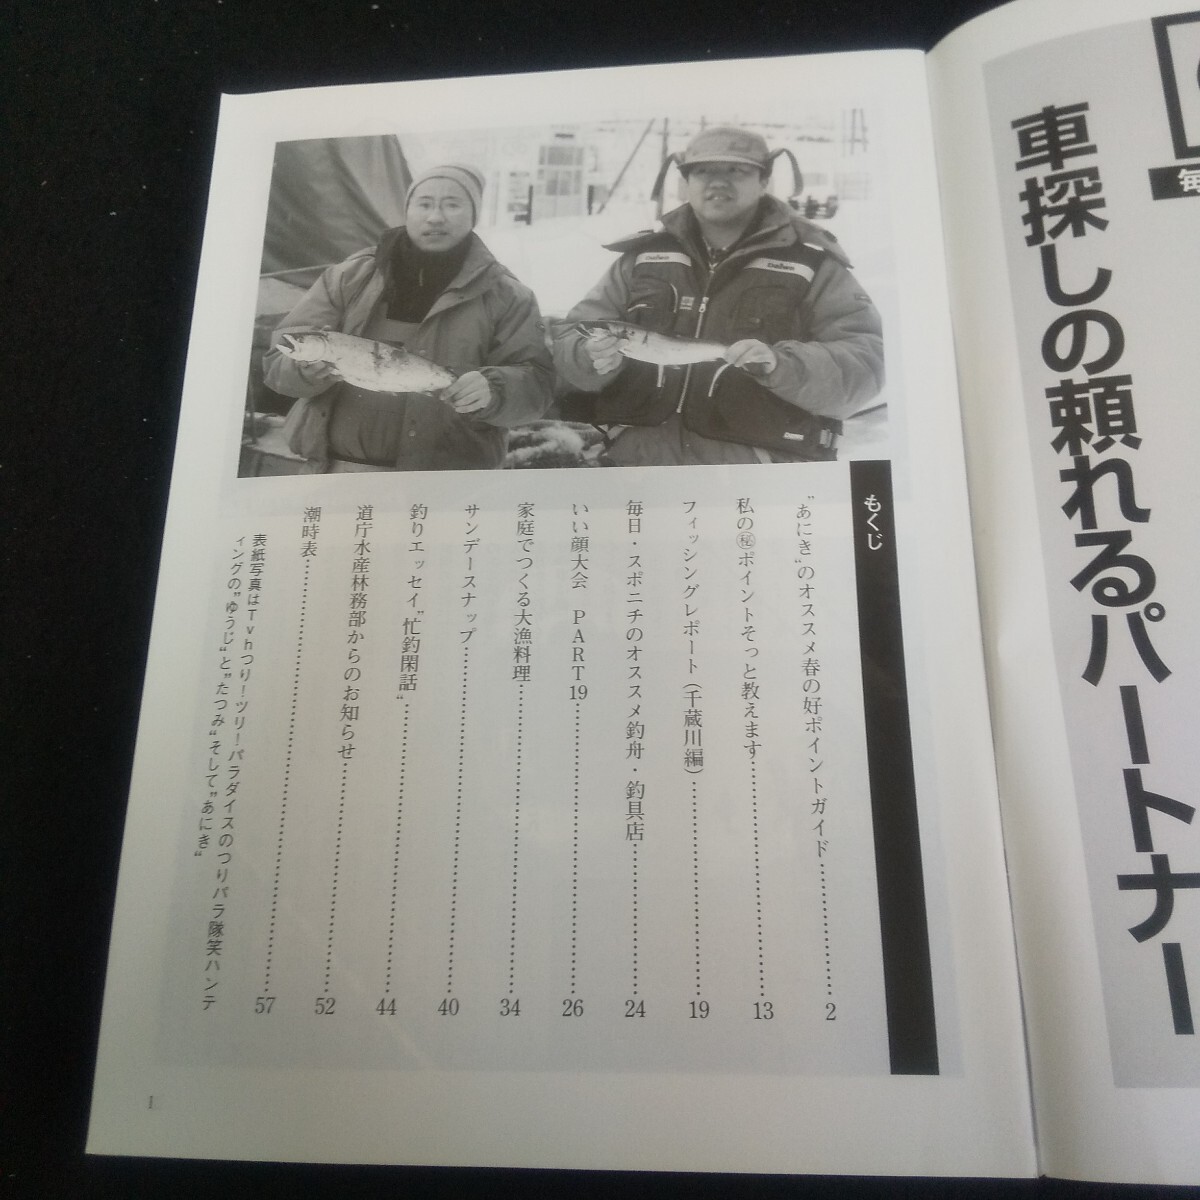 車探しの頼れるパートナー
毎
Daiwa
Daiwa
もくじ
“あにき”のオススメ春の好ポイントガイド……………2
私の㊙ポイントそっと教えます……………13
フィッシングレポート（千蔵川編）……………19
毎日・スポニチのオススメ釣舟・釣具店……………24
いい顔大会　PART19……………26
家庭でつくる大漁料理……………34
サンデースナップ……………40
釣りエッセイ“忙釣閑話”……………44
道庁水産林務部からのお知らせ……………52
潮時表……………57
表紙写真はTvhつり！ツリ！パラダイスのつりパラ隊笑ハンテ
ィングの“ゆうじ”と“たつみ”そして“あにき”
1